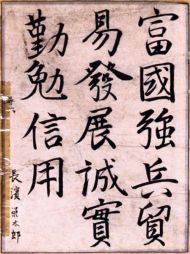 富國強兵貿
易發展誠實
勤勉信用
長濱
太郎